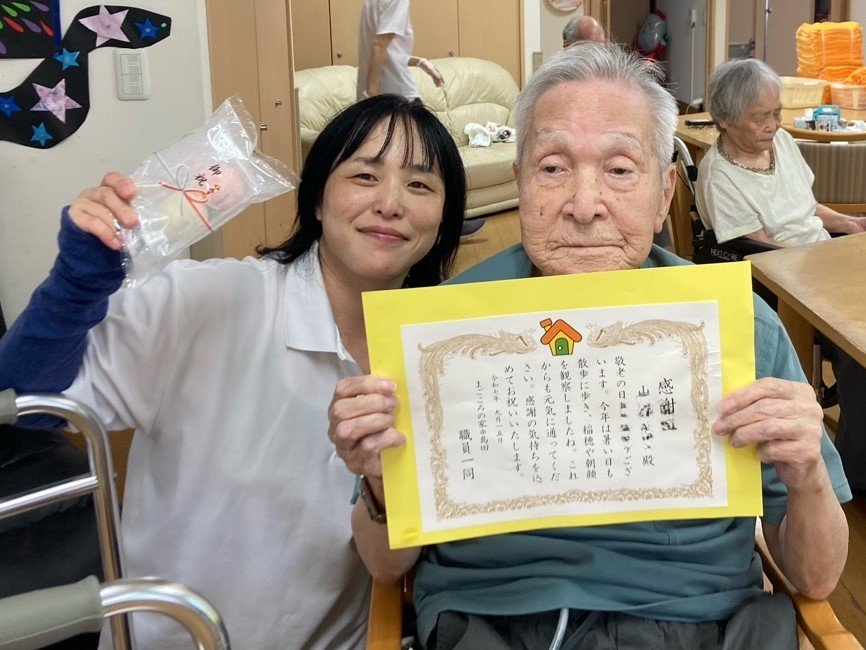 御祝
感謝
山 殿
敬老の日 ござ
います。今年は暑い日も
散歩に歩き、稲穂や朝顔
を観察しましたね。これ
からも元気に通ってくだ
さい。感謝の気持ちを込
めてお祝いいたします。
令和七年 九月一五日
まごころの家 島田
職員一同